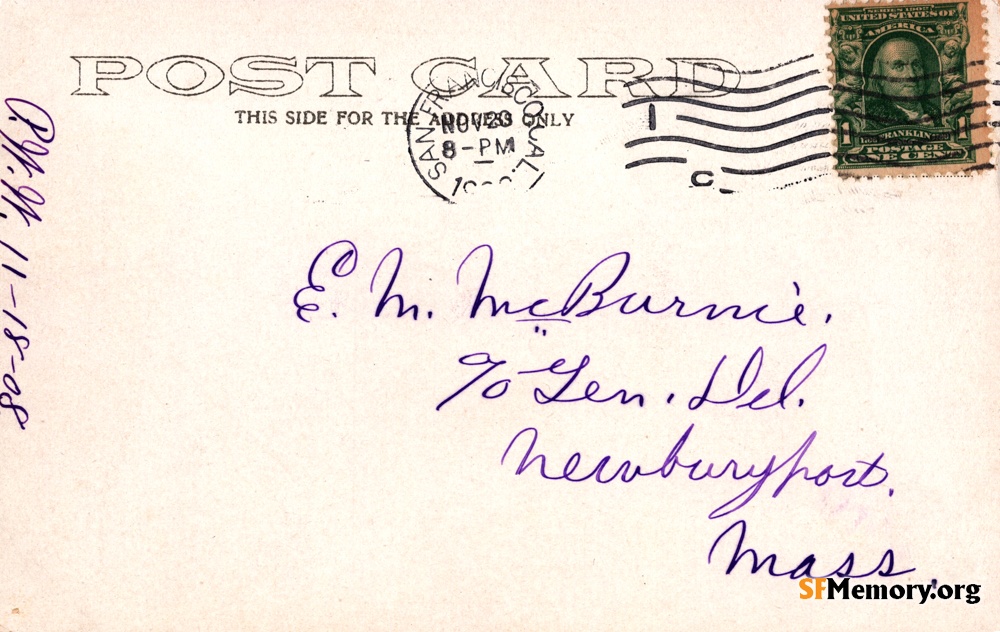 POST CARD
THIS SIDE FOR THE ADDRESS ONLY
SAN FRANCISCO, CAL.
NOV 20
8-PM
1
C
SERIES 1902
UNITED STATES OF
AMERICA
1 FRANKLIN 1
POSTAGE
ONE CENT
11-18-08
E. M. McBurnie.
c/o Gen. Del.
Newburyport.
Mass.
SFMemory.org